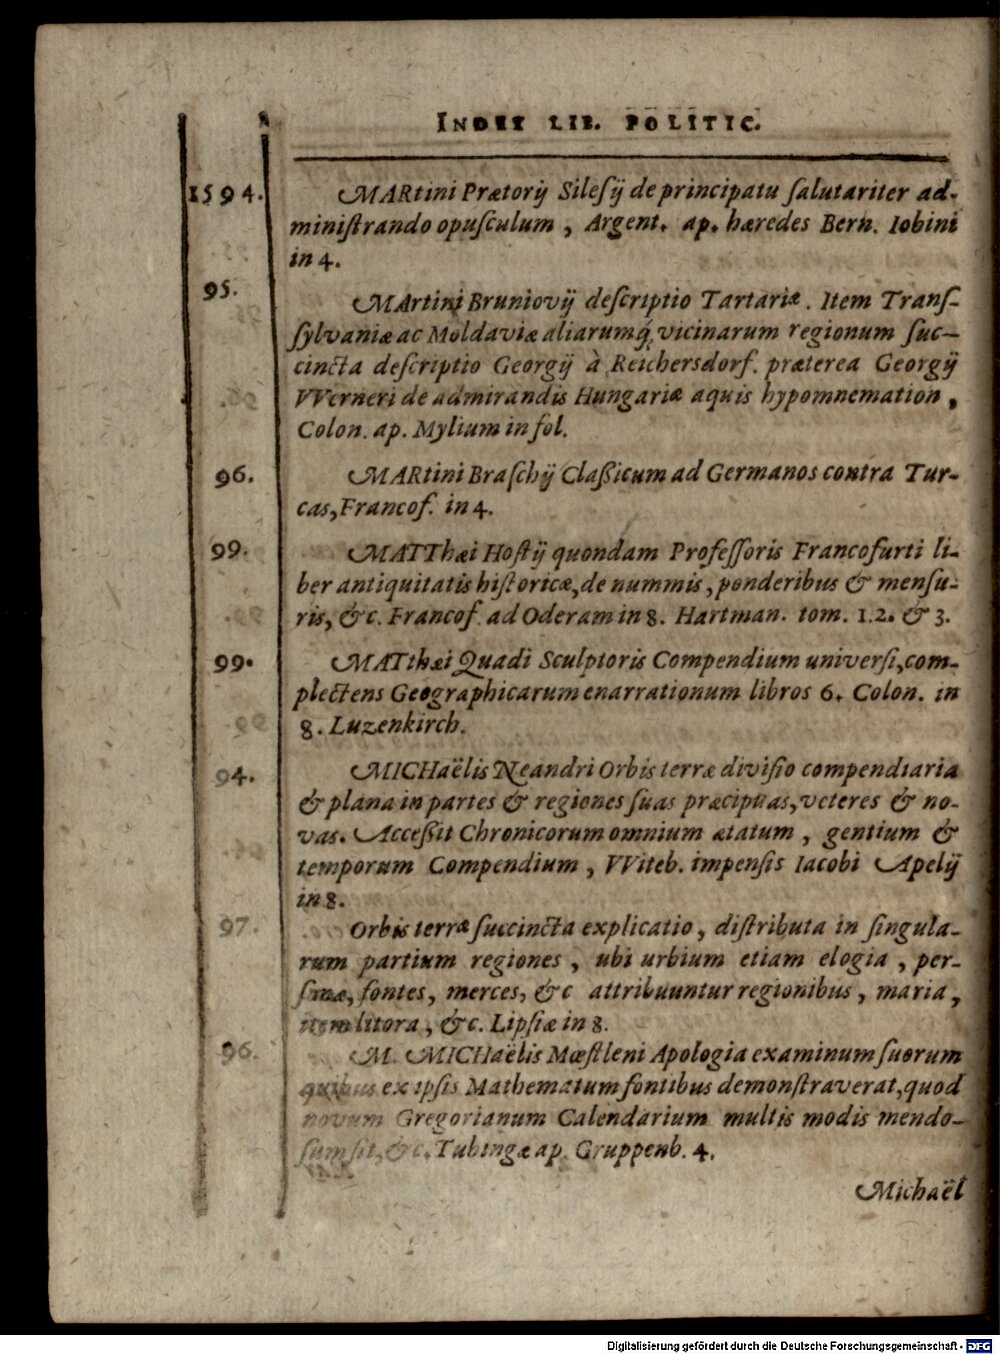 INDEX LIB. POLITIC.
1594. MARtini Prætorij Silesij de principatu salutariter ad-
ministrando opusculum, Argent. ap. hæredes Bern. Iobini
in 4.
95. MArtini Bruniovij descriptio Tartariæ. Item Trans-
sylvaniæ ac Moldaviæ aliarumq́; vicinarum regionum suc-
cincta descriptio Georgij à Reichersdorf. præterea Georgij
VVerneri de admirandis Hungariæ aquis hypomnemation,
Colon. ap. Mylium in fol.
96. MARtini Braschij Claßicum ad Germanos contra Tur-
cas, Francof. in 4.
99. MATThæi Hostij quondam Professoris Francofurti li-
ber antiquitatis historicæ, de nummis, ponderibus & mensu-
ris, &c. Francof. ad Oderam in 8. Hartman. tom. 1.2. & 3.
99. MATthæi Quadi Sculptoris Compendium universi, com-
plectens Geographicarum enarrationum libros 6. Colon. in
8. Luzenkirch.
94. MICHaëlis Neandri Orbis terræ divisio compendiaria
& plana in partes & regiones suas præcipuas, veteres & no-
vas. Acceßit Chronicorum omnium ætatum, gentium &
temporum Compendium, VViteb. impensis Iacobi Apelij
in 8.
97. Orbis terræ succincta explicatio, distributa in singula-
rum partium regiones, ubi urbium etiam elogia, per-
smæ, fontes, merces, &c attribuuntur regionibus, maria,
item litora, &c. Lipsiæ in 8.
96. M. MICHaëlis Mæstleni Apologia examinum suorum
quibus ex ipsis Mathematum fontibus demonstraverat, quod
novum Gregorianum Calendarium multis modis mendo-
sum sit, &c. Tubingæ ap. Gruppenb. 4.
Michaël
Digitalisierung gefördert durch die Deutsche Forschungsgemeinschaft - DFG